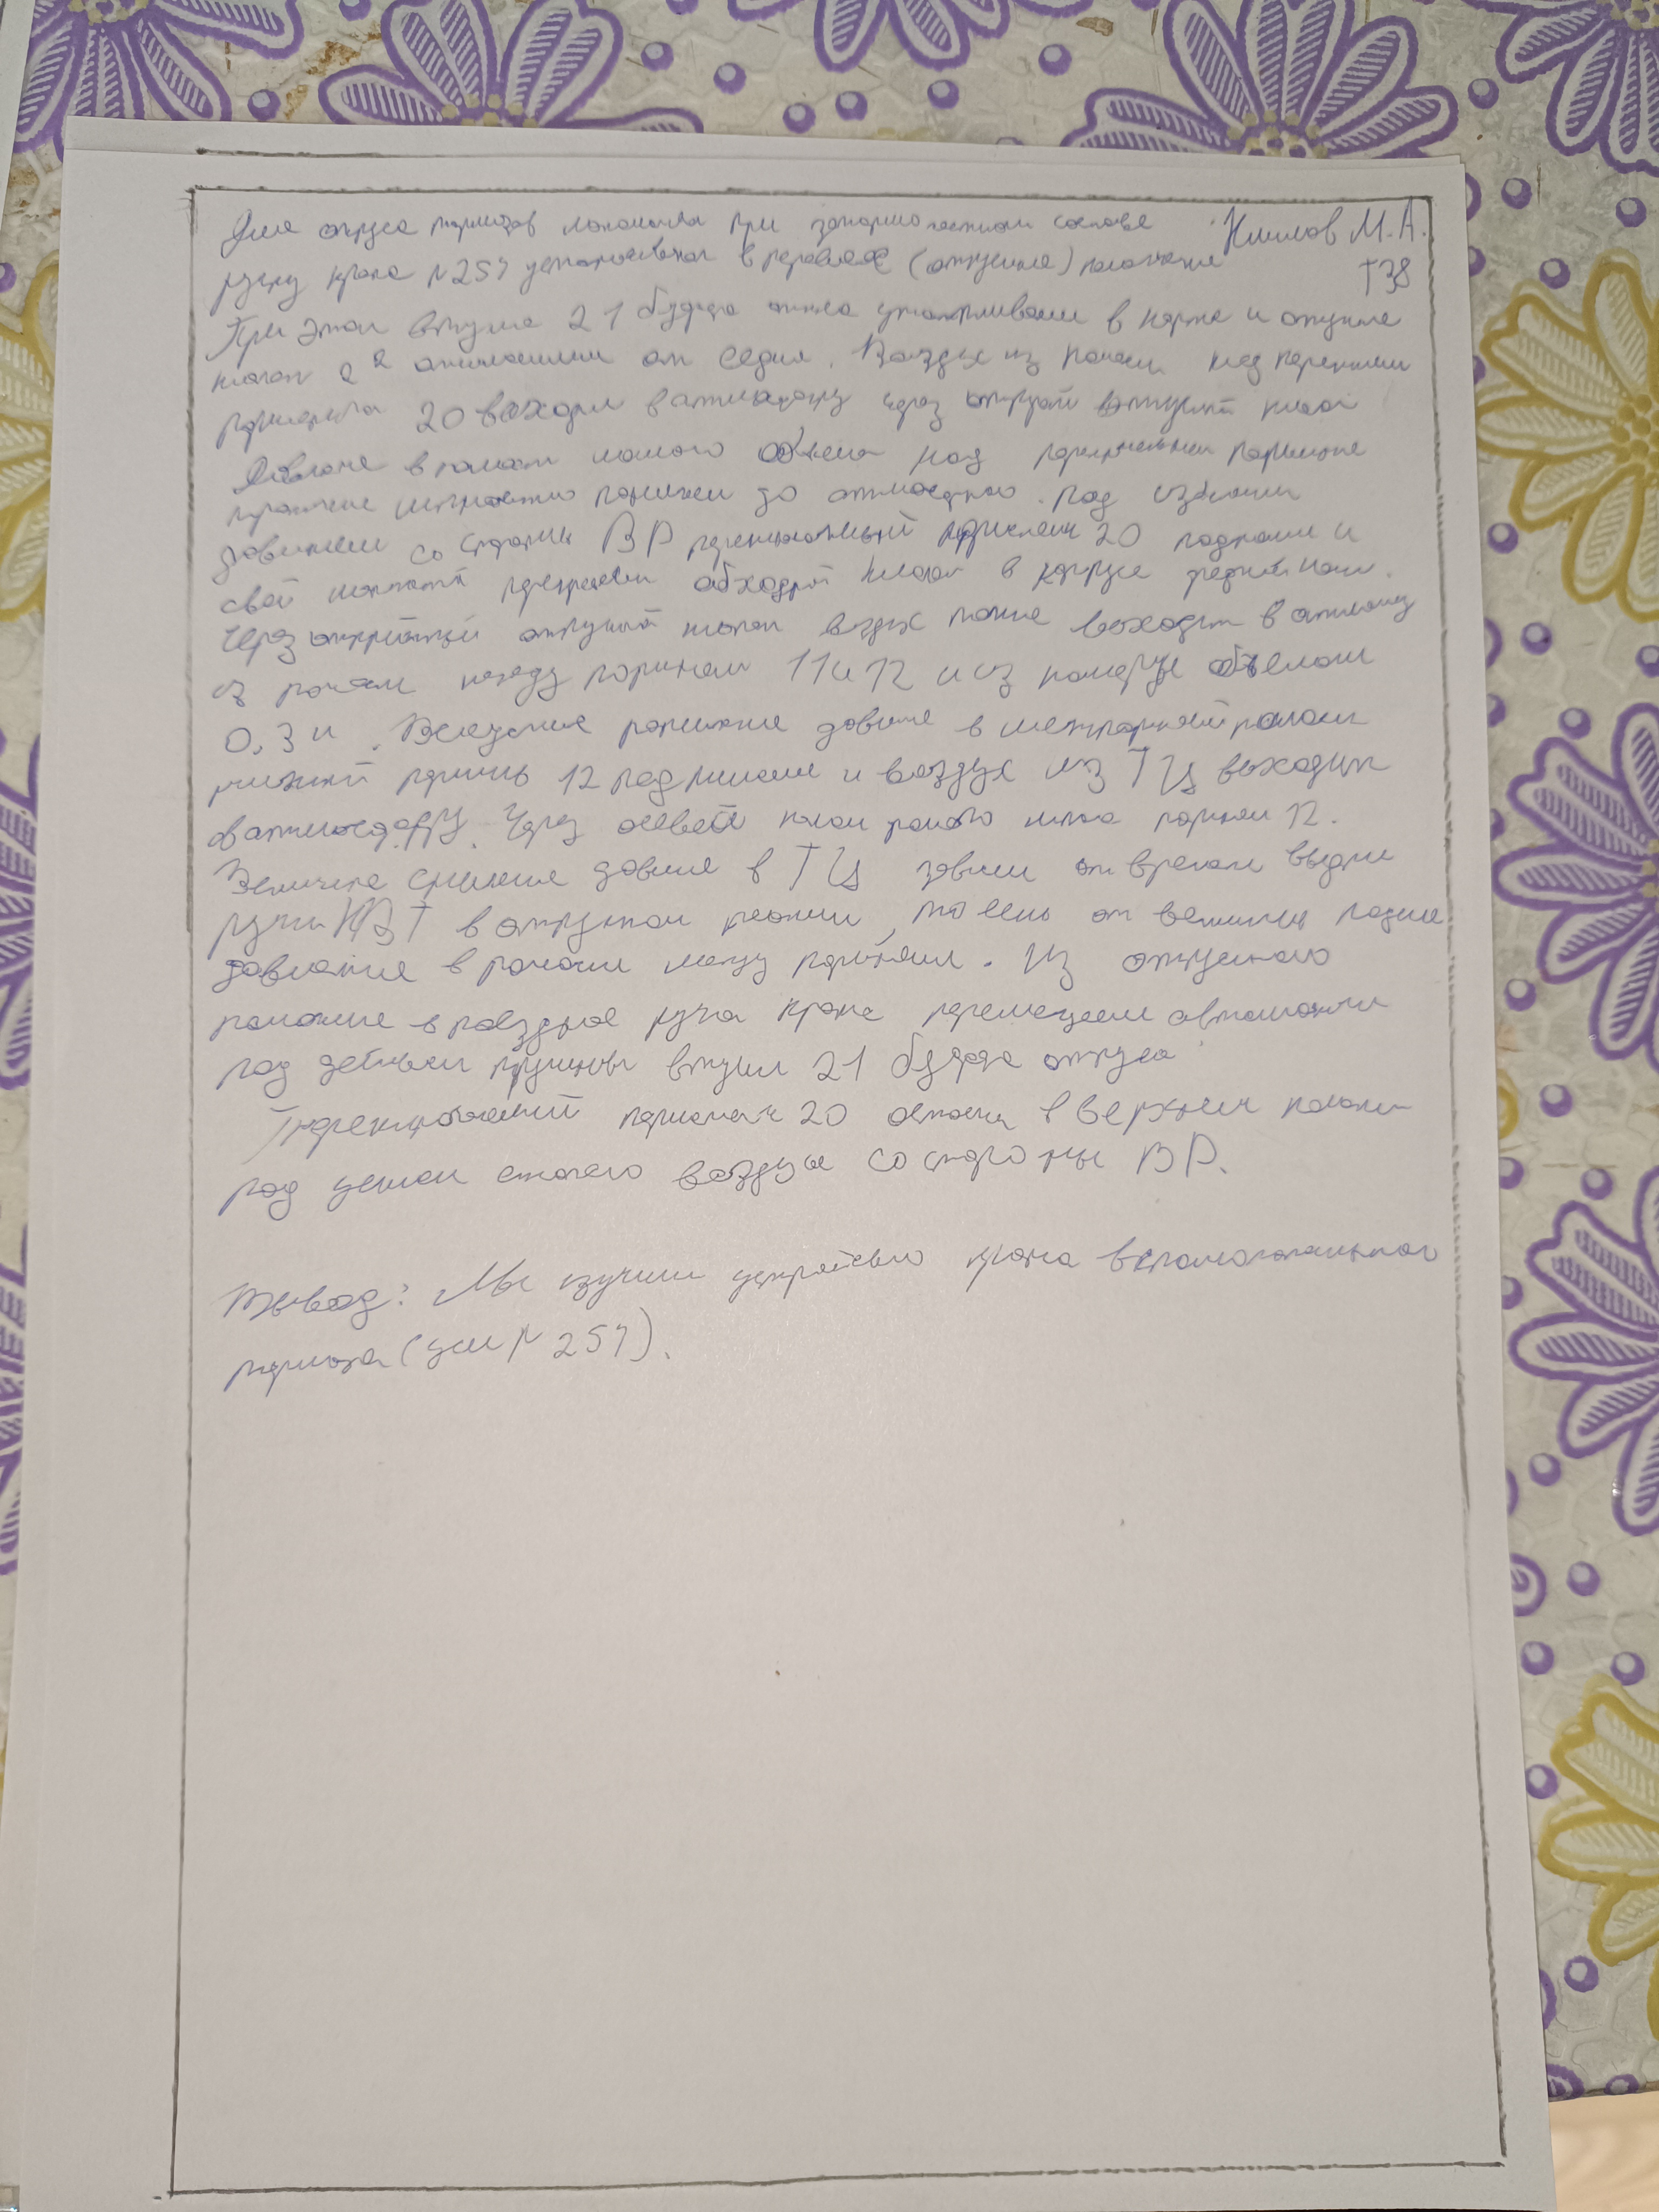 Для отпуса тормозов локомотива при заторможенном составе
ручку крана N 254 устанавливают в первое (отпускное) положение
При этом втулка 21 буфера отпуска утапливаем в корпус и отпускной
клапан 22 отжимаем от седла. Воздух из камеры над переключ
поршнем 20 выходит в атмосферу через открытый отпускной клапан
Давление в камере малого объема над переключательным поршнем
понижен до атмосферного. Под избыточным
давлением со стороны ВР переключательный поршень 20 поднимаем и
своей манжетой перекрывает обходной канал в корпусе средней части.
Через открытый отпускной клапан воздух также выходит в атмосферу
из камеры между поршнем 11 и 12 и из камеры объемом
0,3 л. Вследствие понижение давление в межпоршневой камере
нижний поршень 12 поднимаем и воздух из ТЦ выходит
в атмосферу. Через осевой канал полого штока поршня 12.
Величина снижение давление в ТЦ зависит от времени выдержки
ручки КВТ в отпускном положении, то есть от величины падение
давление в камере между поршнями. Из отпускного
положение в поездное ручка крана перемещаем автоматически
под действием пружины втулки 21 буфера отпуска
Переключательный поршень 20 остается в верхнем положении
под усилием сжатого воздуха со стороны ВР.
Вывод: Мы изучили устройство крана вспомогательного
тормоза (усл N 254).
М.А.
Т38